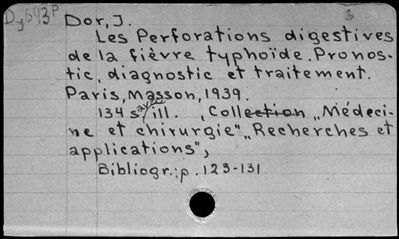 Dy693P
Dor, J.
3
Les Perforations digestives
de la fièvre typhoïde. Pronos-
tic, diagnostic et traitement.
Paris, Masson, 1939.
134 s avec ill. , Collection „Médeci-
ne et chirurgie" „Recherches et
applications",
Bibliogr.: p. 123-131